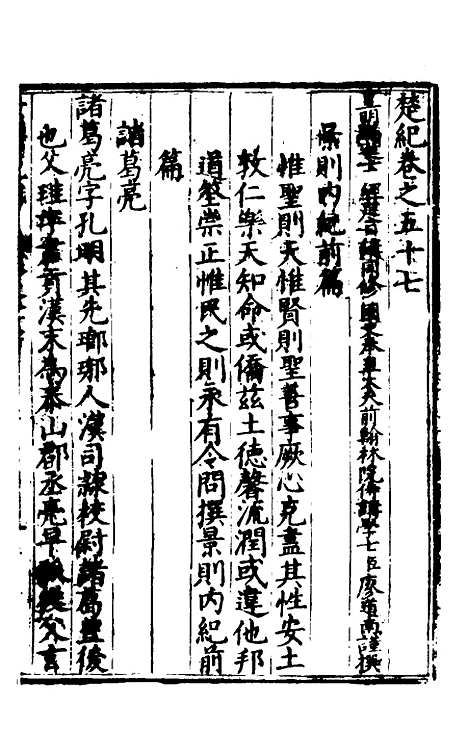 楚紀卷之五十七
皇明 士 經筵 官 同修 國史奉 大夫前翰林院侍講學士臣廖道南謹撰
景則內紀前篇
惟聖則天惟賢則聖善事厥心克盡其性安土
敦仁樂天知命或僑茲土德馨流潤或違他邦
道筌崇正惟民之則永有令問撰景則內紀前
篇
諸葛亮
諸葛亮字孔明其先瑯琊人漢司隸校尉諸葛豐後
也父珪字 漢末為泰山郡丞亮早 從父玄